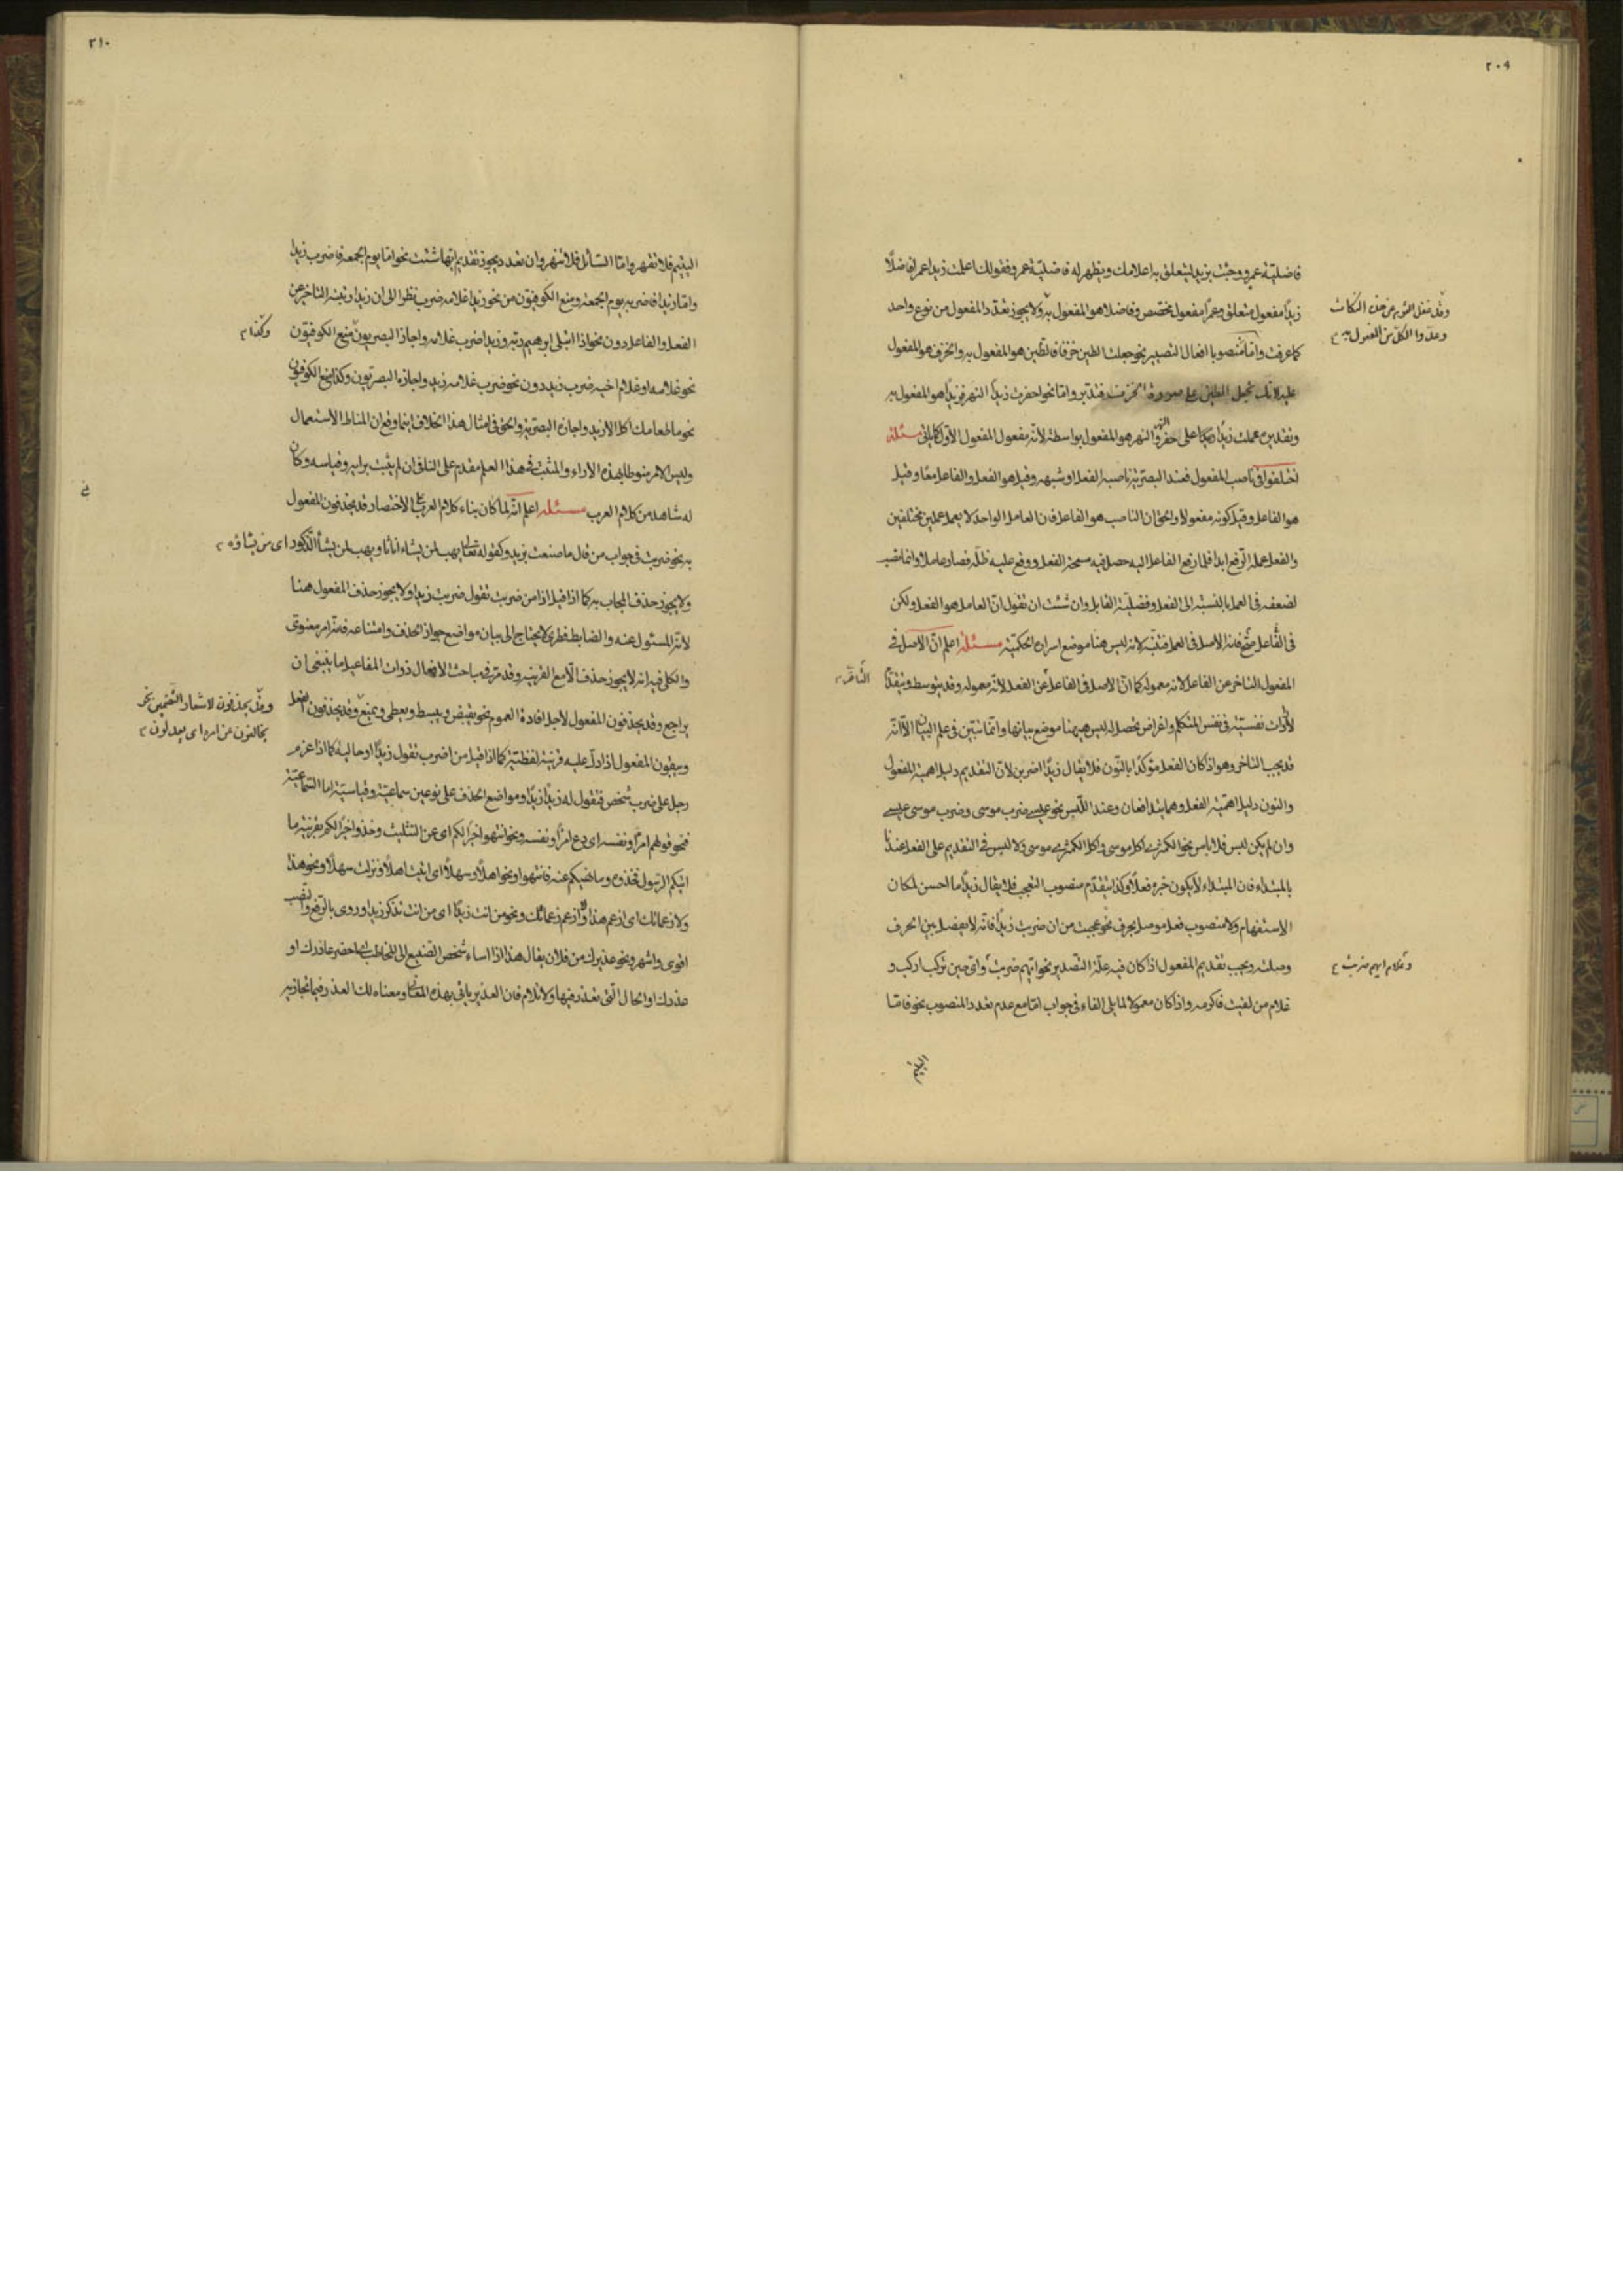 ٢٠٩
فاضليّة عمرو وجئت بزيد ليتعلق به اعلامك ويظهر له فاضليّة عمرو فقولك اعلمت زيدا عمرا فاضلًا
زيدًا مفعول متعلق وعمرًا مفعول مختص وفاضلا هو المفعول به ولا يجوز تعدّد المفعول من نوع واحد
وقد غفل القوم عن هذه النكات
وعدّوا الكلّ من المفعول به
كما عرفت وامّا منصوبا افعال التصيير نحو جعلت الطين خزفا فالطين هو المفعول به والخزف هو المفعول
عليه لانك تجعل الطين على صورة الخزف فتدبر وامّا نحو احفرت زيدًا النهر فزيدًا هو المفعول به
وتقديره عملت زيدًا على حفر النهر والنهر هو المفعول بواسطة لأنّه مفعول المفعول الأوّل كما يأتى مسئلة
اختلفوا فى ناصب المفعول فعند البصريّة ناصبه الفعل او شبهه وقيل هو الفعل والفاعل معًا وقيل
هو الفاعل وقيل كونه مفعولا والحق ان الناصب هو الفاعل فان العامل الواحد لا يعمل عملين مختلفين
والفعل عمله الرفع ابدا فلما رفع الفاعل اليه حصل فيه سمحة الفعل ووقع عليه ظلّه فصار عاملا وانما نصب
لضعفه فى العمل بالنسبة الى الفعل وفضليّة القابل وان شئت ان تقول انّ العامل هو الفعل ولكن
فى الفاعل صحّ فانه الاصل فى العمل فتنبّه لانه ليس هنا موضع اسراره الحكميّة مسئلة اعلم انّ الاصل فى
المفعول التاخر عن الفاعل لانه معموله كما انّ الاصل فى الفاعل عن الفعل لأنّه معموله وقد يتوسط ويتقدّم
التاخر
لأثرات نفسيّة فى نفس المتكلم واغراض تحصل له ليس هيهنا موضع بيانها وانّما تتبيّن فى علم البيان الّا انّه
قد يجب التاخر وهو اذ كان الفعل مؤكدًا بالنّون فلا يقال زيدًا اضربن لانّ التقديم دليل اهمية المفعول
والنون دليل اهميّة الفعل وهما يتدافعان وعند اللّبس نحو عيسى ضرب موسى وضرب موسى عيسى
وان لم يكن لبس فلا بأس نحو الكمثرى اكل موسى واكل الكمثرى موسى ولا لبس فى التقديم على الفعل عندنا
بالمبتداء فان المبتداء لا يكون خبره فعلًا وكذا يتقدّم منصوب التعجب فلا يقال زيدًا ما احسن لمكان
الاستفهام ولا منصوب فعل موصل بحرف نحو عجبت من ان ضربت زيدًا فانّه لا يفصل بين الحرف
وصلته ويجب تقديم المفعول اذا كان فيه علّة التصدير نحو ايّهم ضربت واىّ حين تركب اركب و
وغلام ايهم ضربت
غلام من لقيت فاكرمه واذا كان معمولا لما يلى الفاء فى جواب امّا مع عدم تعدد المنصوب نحو فامّا
اليتيم
٢١٠
اليتيم فلا تقهر وامّا السّائل فلا تنهر وان تعدد يجوز تقديم ايّها شئت نحو امّا يوم الجمعة فاضرب زيدا
وامّا زيدا فاضربه يوم الجمعة ومنع الكوفيّون من نحو زيدا غلامه ضرب نظرا الى ان زيدا رتبته التاخر عن
الفعل والفاعل دون نحو اذا ابتلى ابرهيم ربّه وزيدا ضرب غلامه واجاز البصريّون منع الكوفيّون
وكذا
نحو غلامه او غلام اخيه ضرب زيد دون نحو ضرب غلامه زيد واجازه البصريّون وكذا منع الكوفيّون
نحو ما طعامك اكل الا زيد واجازه البصريّة والحق فى امثال هذا الخلاف انما وقع ان المناط الاستعمال
وليس الامر منوطا بهذه الاراء والمثبت فى هذا العلم مقدم على النافى ان لم يثبت برايه وقياسه وكان
له شاهد من كلام العرب مسئلة اعلم انّه لما كان بناء كلام العرب على الاختصار قد يحذفون المفعول
به نحو ضربت فى جواب من قال ما صنعت بزيد وكقوله تعالى يهب لمن يشاء اناثا ويهب لمن يشأ الذّكور اى من يشاؤه
ولا يجوز حذف المجاب به كما اذا قيل اذا من ضربت تقول ضربت زيدا ولا يجوز حذف المفعول هنا
لأنّه المسئول عنه والضابط فطرى لا يحتاج الى بيان مواضع جواز الحذف وامتناعه فانّه امر معنوى
والكلى فيه انه لا يجوز حذف الّا مع القرينه وقد مرّ فى مباحث الافعال ذوات المفاعيل ما ينبغى ان
يراجع وقد يحذفون المفعول لاجل افادة العموم نحو يقبض ويبسط ويعطى ويمنع وقد يحذفون الفعل
وقد يحذفون لاشعار التضمين نحو
يخالفون عن امره اى يعدلون
ويبقون المفعول اذا دلّ عليه قرينة لفظيّة كما اذا قيل من اضرب تقول زيدًا او حاليه كما اذا عزم
رجل على ضرب شخص فتقول له زيدًا زيدًا ومواضع الحذف على نوعين سماعيّة وقياسيّة اما السّماعيّة
فنحو قولهم امرًا ونفسه اى دع امرًا ونفسه ونحو انتهوا خيرًا لكم اى عن التثليث وخذوا خيرًا لكم بقرينة ما
اتيكم الرسول فخذوه وما نهيكم عنه فانتهوا ونحو اهلًا وسهلًا اى اتيت اهلًا ونزلت سهلًا ونحو هذا
ولا زعماتك اى ازعم هذا ولا ازعم زعماتك ونحو من انت زيدًا اى من انت تذكر زيدا وروى بالرّفع والنّصب
اقوى واشهر ونحو عذيرك من فلان يقال هذا اذا اساء شخص الصّنيع الى المخاطب اى احضر عاذرك او
عذرك او الحال الّتى تعذر فيها ولا تلام فان العذير ياتى بهذه المعانى ومعناه لك العذر فيما تجازيه